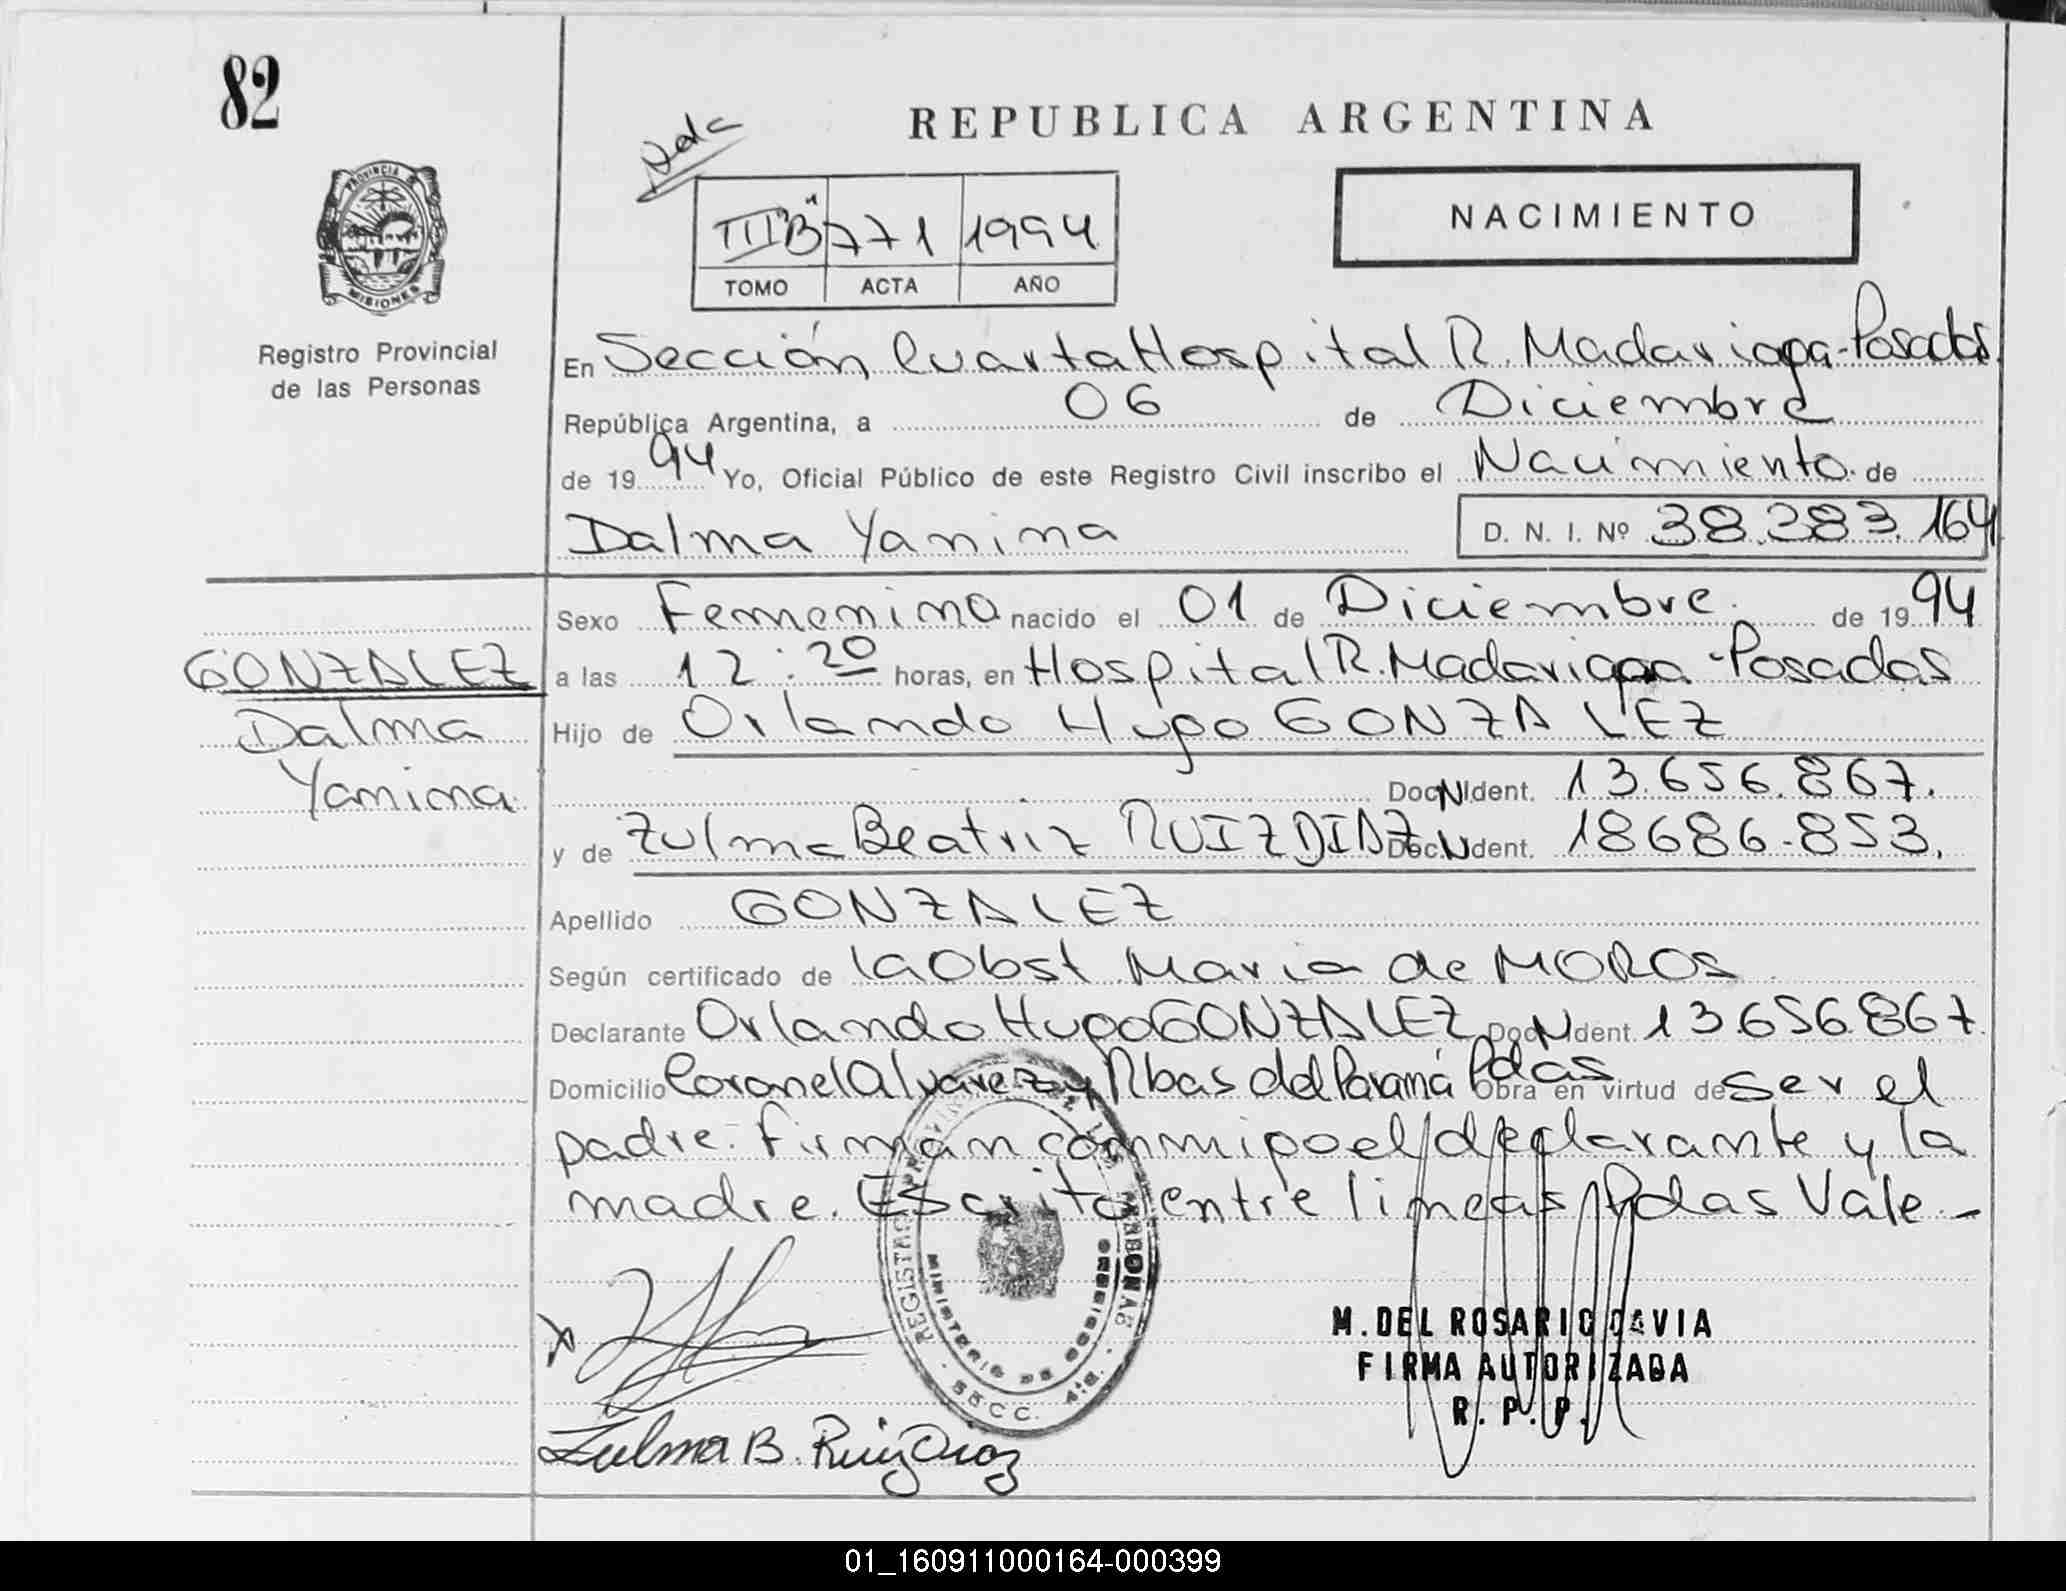 82
REPUBLICA ARGENTINA
PROVINCIA DE
MISIONES
Registro Provincial
de las Personas
III "B" 771 1994
TOMO ACTA AÑO
NACIMIENTO
En Sección Cuarta Hospital R. Madariaga-Posadas.
República Argentina, a 06 de Diciembre
de 1994 Yo, Oficial Público de este Registro Civil inscribo el Nacimiento de
Dalma Yanina D. N. I. Nº 38.283.164
Sexo Femenino nacido el 01 de Diciembre. de 1994
GONZALEZ
Dalma
Yanina.
a las 12:20 horas, en Hospital R. Madariaga-Posadas
Hijo de Orlando Hugo GONZALEZ
Doc.N.Ident. 13.656.867.
y de Zulma Beatriz RUIZ DIAZ Doc.N.Ident. 18686.853.
Apellido GONZALEZ
Según certificado de la Obst. Maria de MOROS
Declarante Orlando Hugo GONZALEZ Doc.N.Ident. 13.656.867.
Domicilio Coronel Alvarez y Rbas del Paraná Pdas Obra en virtud de ser el
padre. Firman conmigo el declarante y la
madre. Escrito entre lineas Pdas Vale.-
REGISTRO PROVINCIAL DE LAS PERSONAS
MINISTERIO DE GOBIERNO
SECC. 4ta.
X
Zulma B. Ruiz Diaz
M. DEL ROSARIO DAVIA
FIRMA AUTORIZADA
R. P. P.
01_160911000164-000399